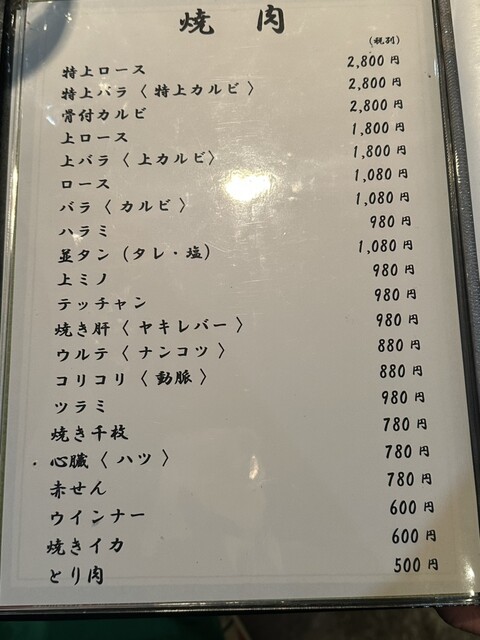 焼肉
(税別)
特上ロース 2,800円
特上バラ〈特上カルビ〉 2,800円
骨付カルビ 2,800円
上ロース 1,800円
上バラ〈上カルビ〉 1,800円
ロース 1,080円
バラ〈カルビ〉 1,080円
ハラミ 980円
並タン（タレ・塩） 1,080円
上ミノ 980円
テッチャン 980円
焼き肝〈ヤキレバー〉 980円
ウルテ〈ナンコツ〉 880円
コリコリ〈動脈〉 880円
ツラミ 980円
焼き千枚 780円
心臓〈ハツ〉 780円
赤せん 780円
ウインナー 600円
焼きイカ 600円
とり肉 500円